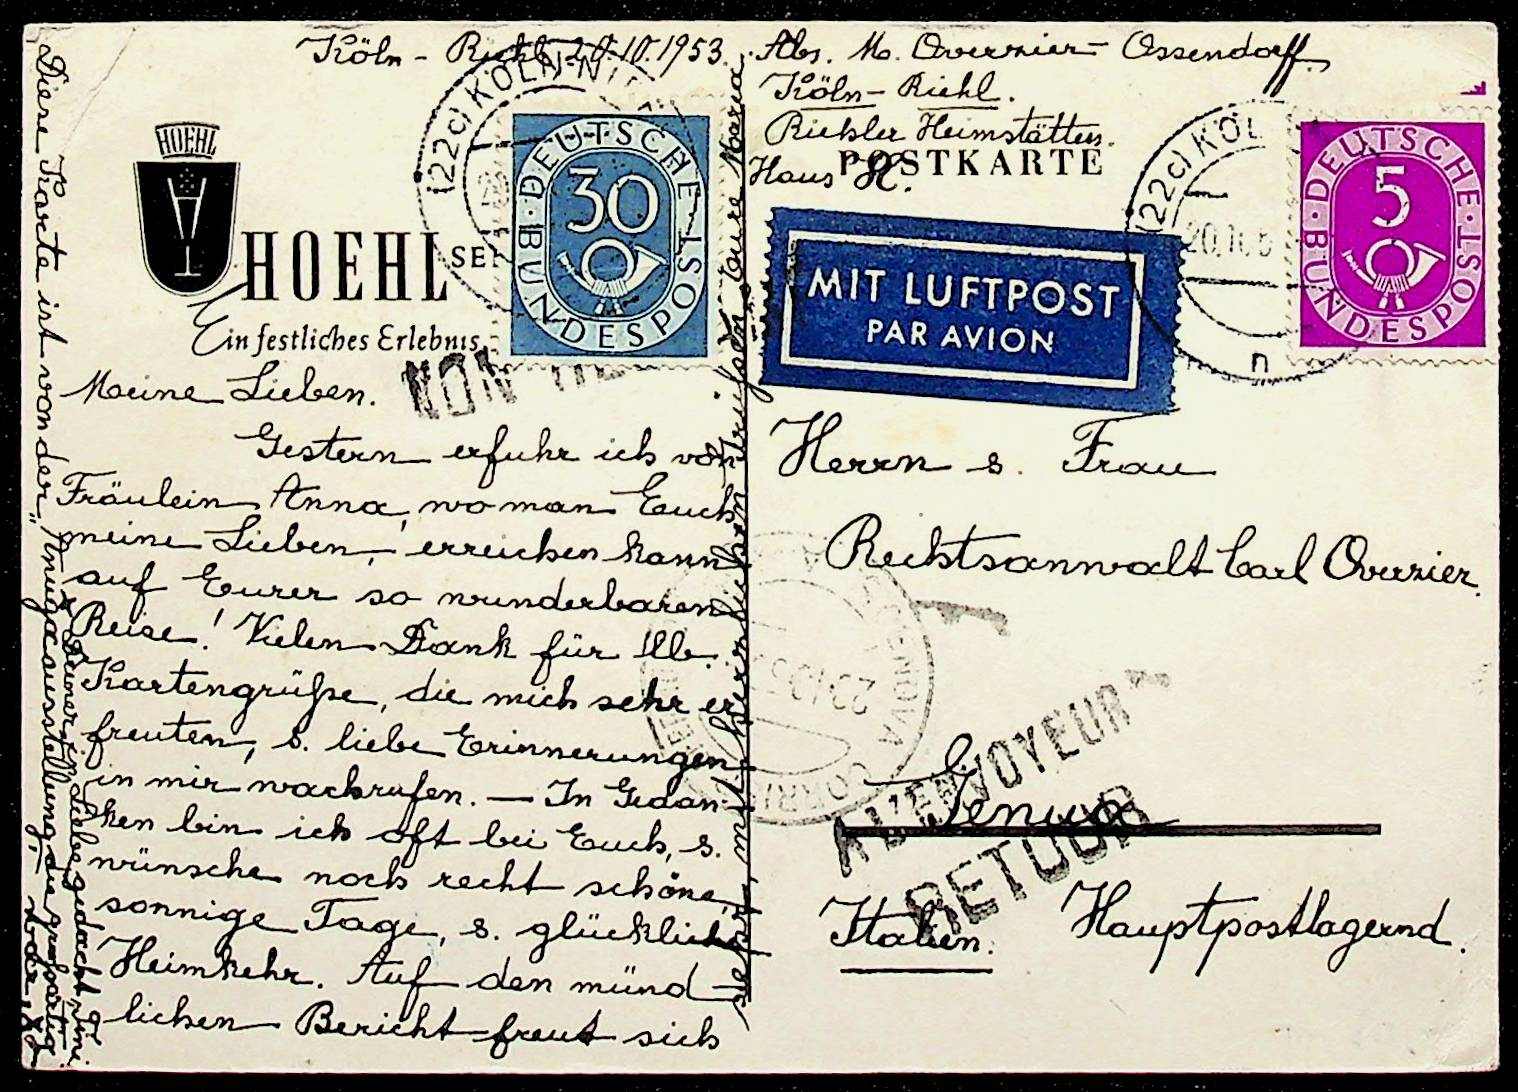 Köln - Riehl, 20.10.1953.
Abs. M. Overzier - Ossendorff.
Köln - Riehl.
Riehler Heimstätten.
Haus H.
POSTKARTE
HOEHL
HOEHL SE
Ein festliches Erlebnis
(22c) KÖLN-NI
DEUTSCHE BUNDESPOST
30
MIT LUFTPOST
PAR AVION
(22c) KÖL
20.10.5
n
DEUTSCHE BUNDESPOST
5
NON
Meine Lieben.
Gestern erfuhr ich von
Fräulein Anna, wo man Euch,
meine Lieben, erreichen kann
auf Eurer so wunderbaren
Reise! Vielen Dank für lb.
Kartengrüße, die mich sehr er
freuten, s. liebe Erinnerungen
in mir wachrufen. — In Gedan-
ken bin ich oft bei Euch, s.
wünsche noch recht schöne,
sonnige Tage, s. glückliche
Heimkehr. Auf den münd-
lichen Bericht freut sich
Eure Maria
Diese Karte ist von der "
ausstellung, die großartig
war.
Herrn s. Frau
Rechtsanwalt Carl Overzier.
Genua
Italien.
Hauptpostlagernd.
GENOVA
A L'ENVOYEUR
RETOUR